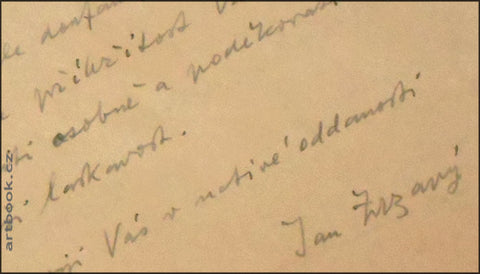 le doufám
příležitost V
osobně a poděkovat
laskavost.
Vás v uctivé oddanosti
Jan Zrzavý
artbook.cz